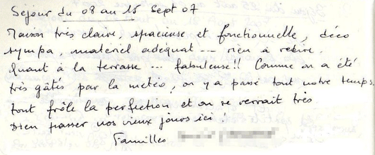 Séjour du 08 au 15 Sept 07
Maison très claire, spacieuse et fonctionnelle, déco
sympa, matériel adéquat --- rien à redire.
Quant à la terrasse --- fabuleuse!! Comme on a été
très gâtés par la météo, on y a passé tout notre temps.
tout frôle la perfection et on se verrait très
bien passer nos vieux jours ici.
Familles